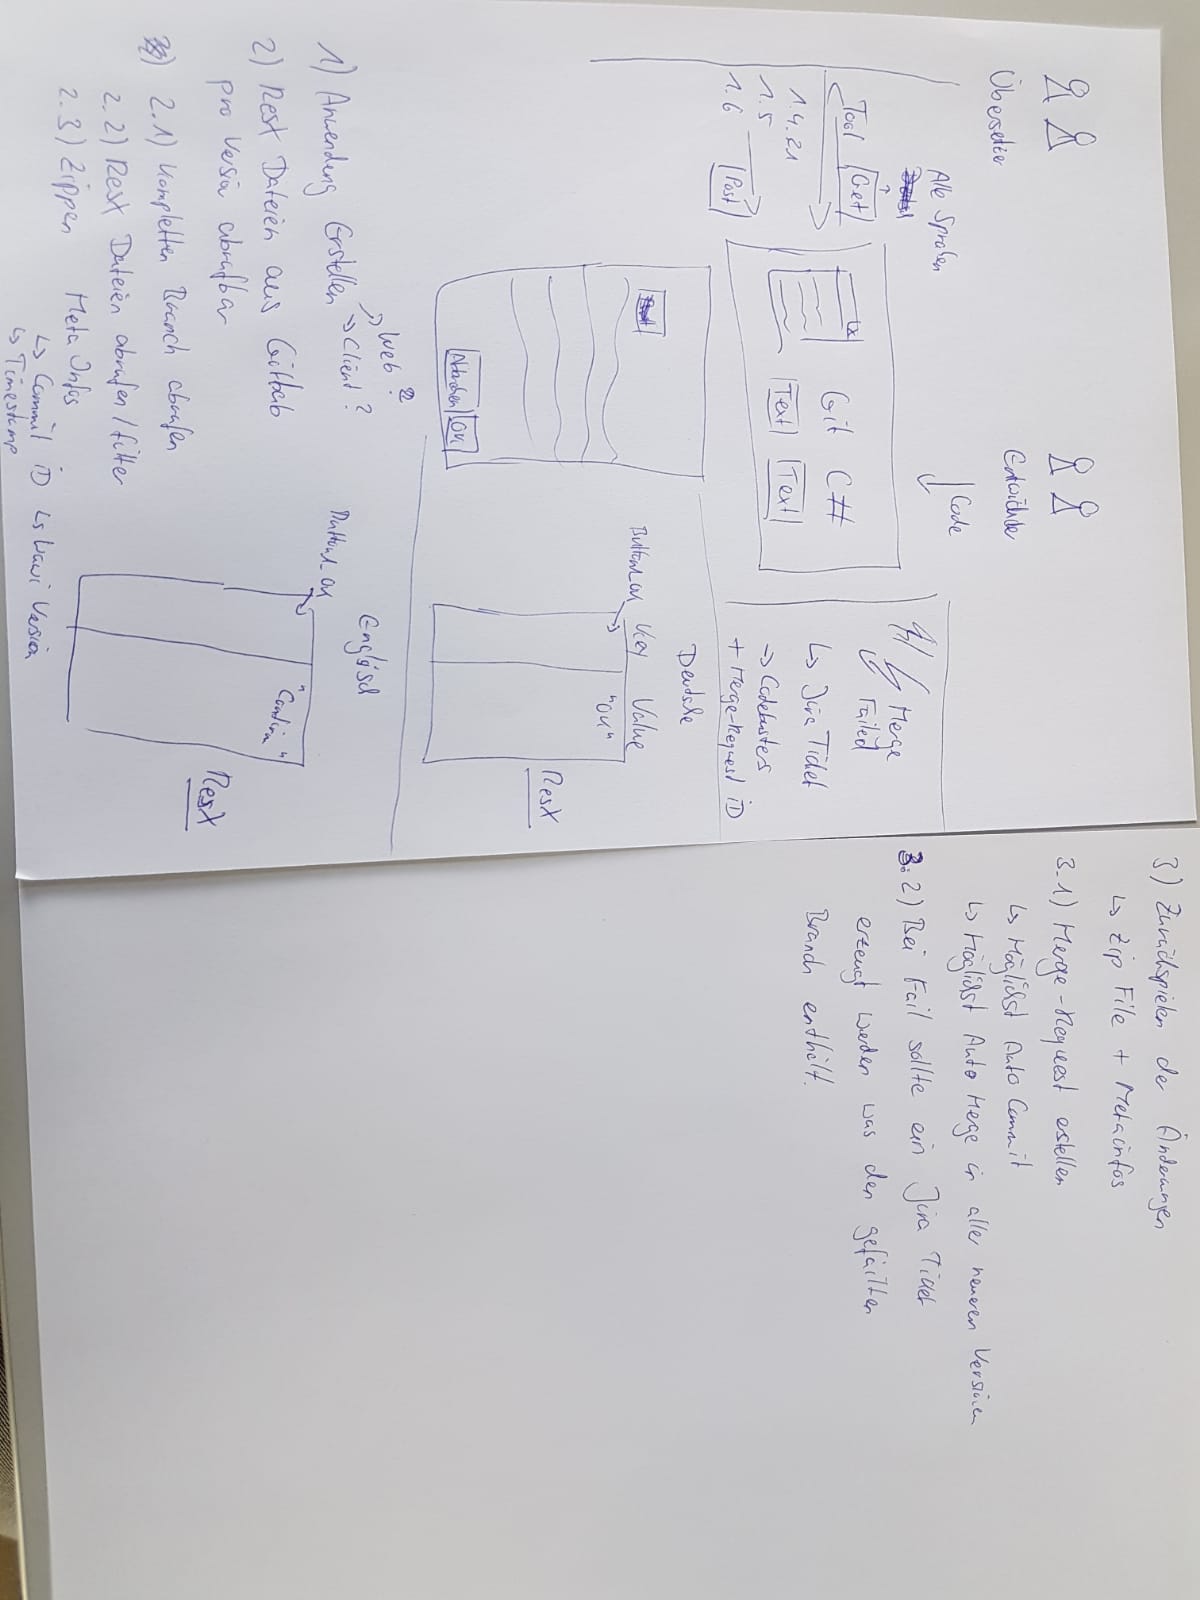 Übersetzer
Entwickler
Alle Sprachen
Code
Tool
Get
1.4.21
1.5
1.6
Post
Git C#
Text
Text
Merge
Failed
↳ Jira Ticket
→ Codebustes
+ Merge-Request iD
Abbrechen
OK
Deutsche
Button_OK
Key
Value
"OK"
ResX
Englisch
Button_OK
"Confirm"
ResX
1) Anwendung Erstellen → Web?
→ Client?
2) ResX Dateien aus Gitlab
pro Version abrufbar
2.1) Kompletten Branch abrufen
2.2) ResX Dateien abrufen / filter
2.3) Zippen Meta Infos
↳ Commit iD ↳ Wawi Version
↳ Timestamp
3) Zurückspielen der Änderungen
↳ Zip File + Metainfos
3.1) Merge-Request estellen
↳ Möglichst Auto Commit
↳ Möglichst Auto Merge in aller neueren Versionen
3.2) Bei Fail sollte ein Jira Ticket
erzeugt werden was den gefailten
Branch enthält.